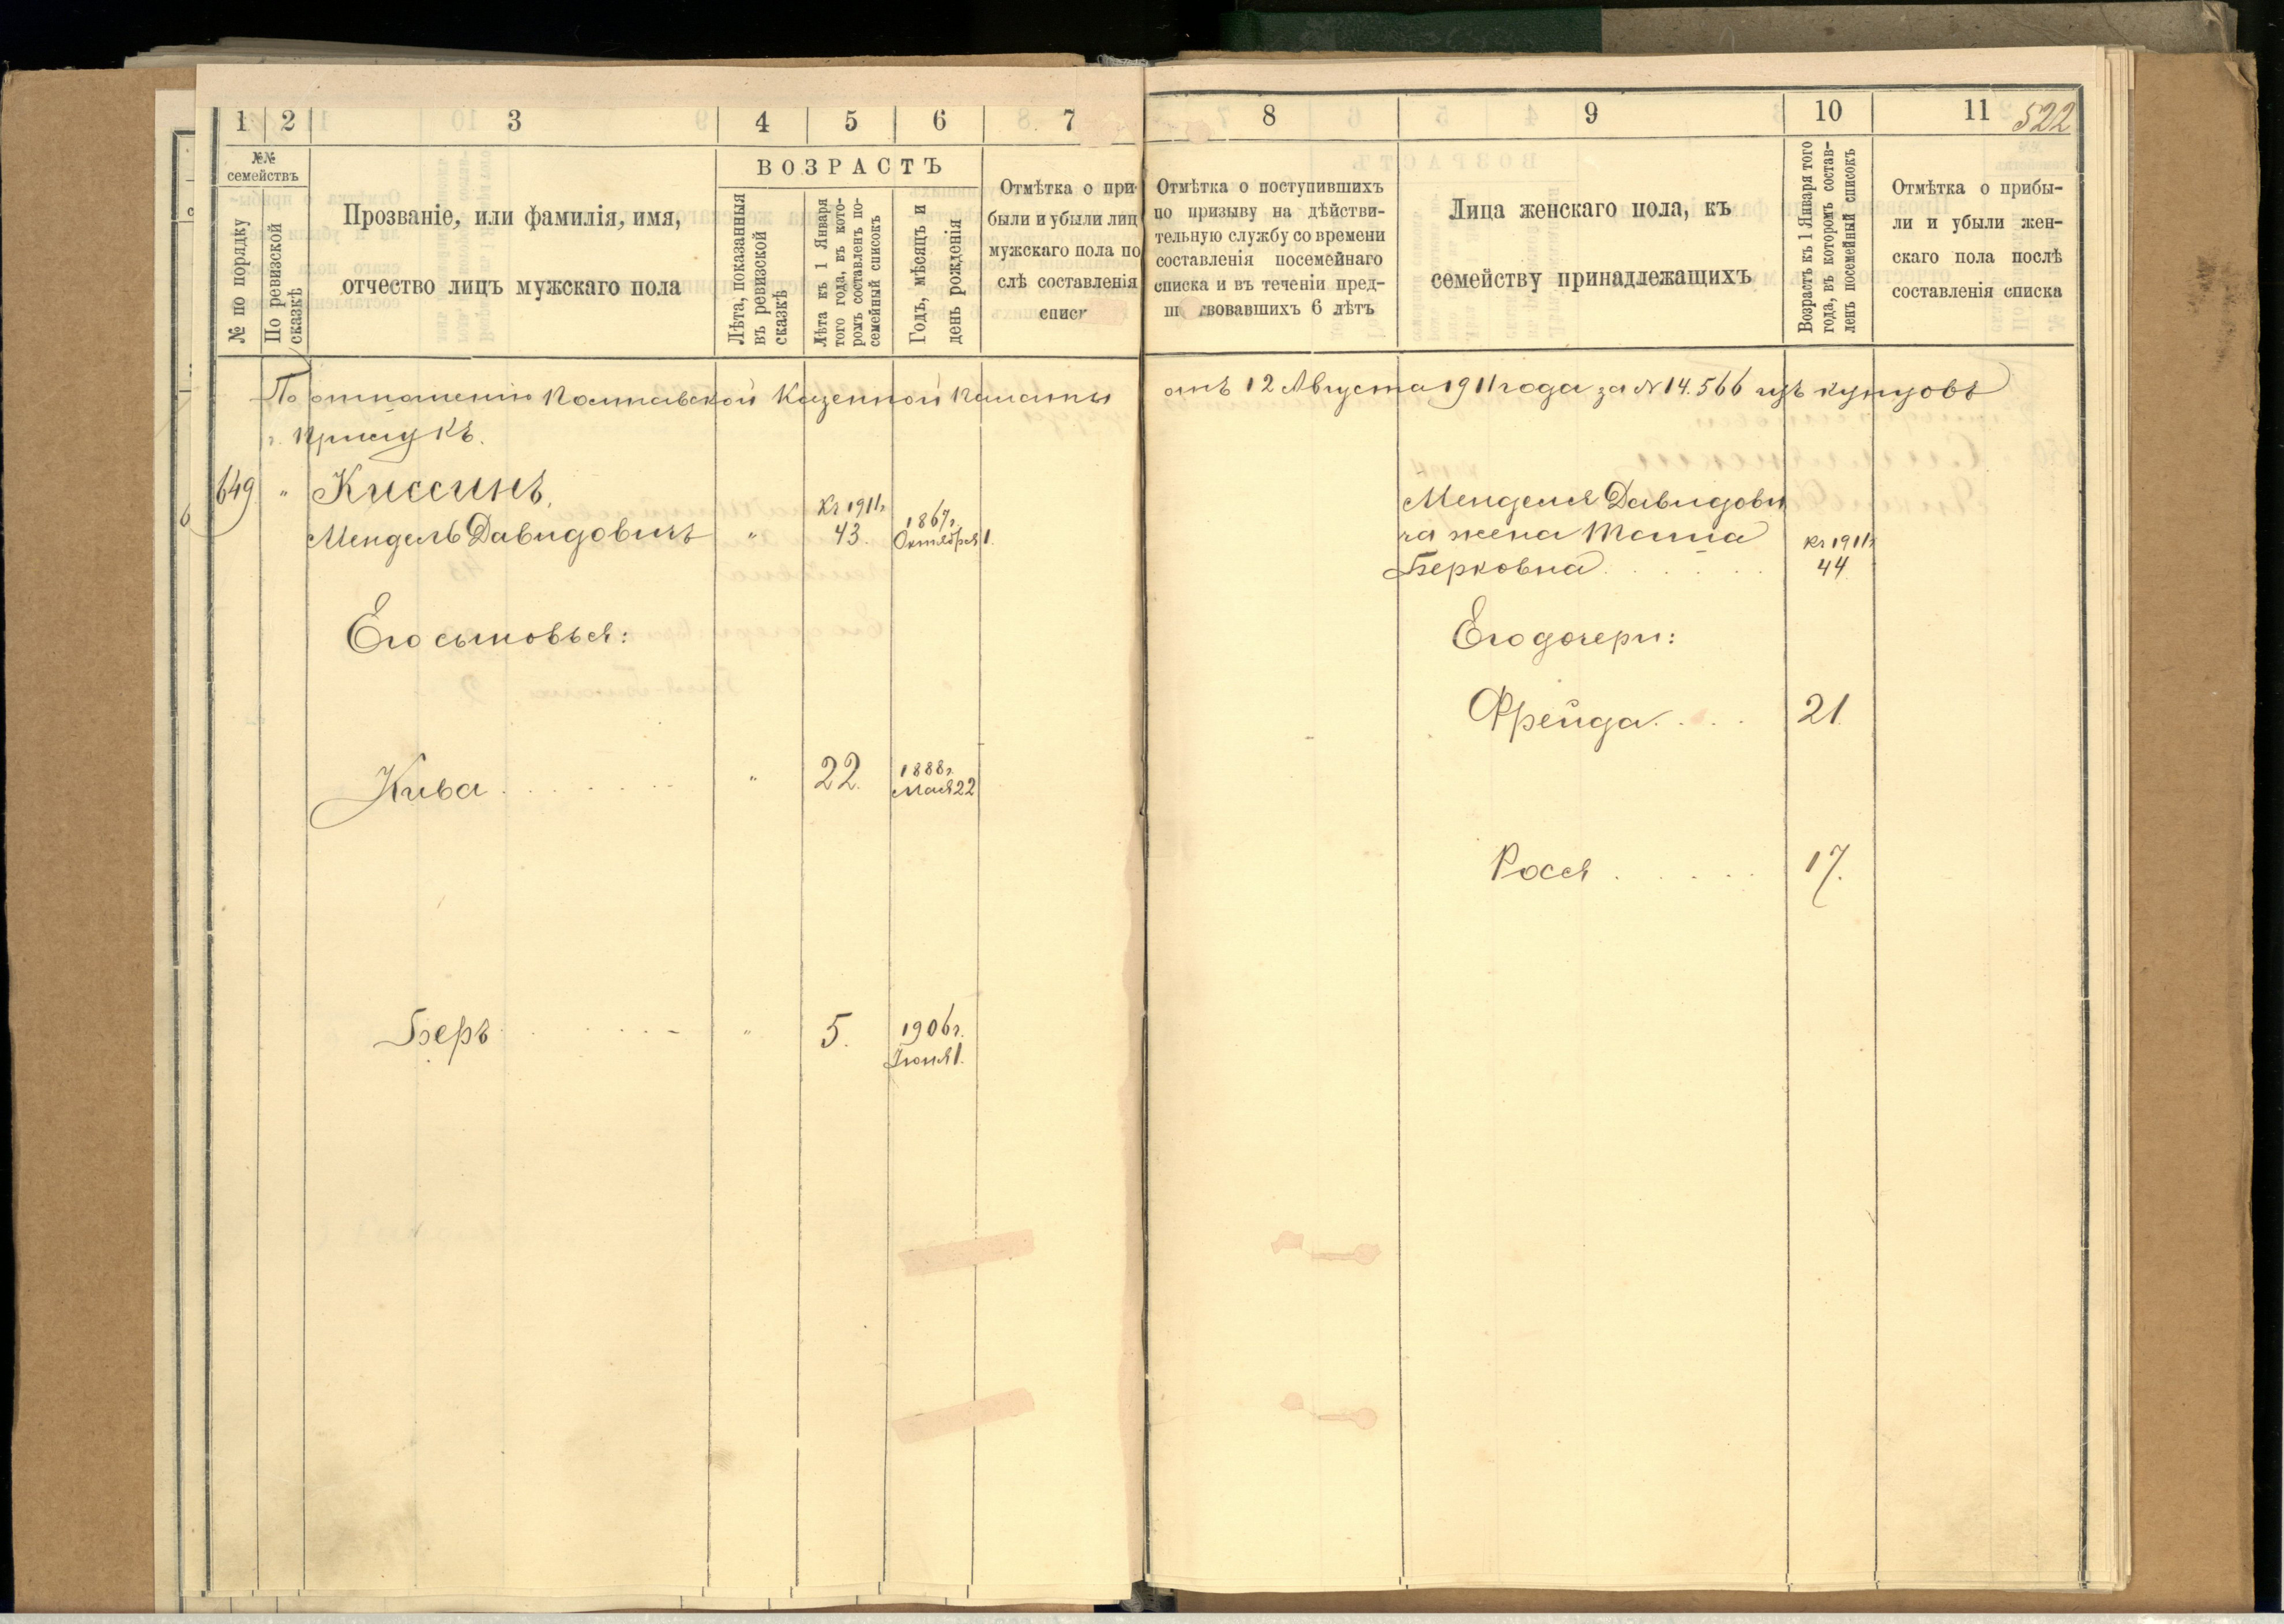 1 2 3 4 5 6 7
№№ семействъ
№ по порядку
По ревизской сказкѣ
Прозваніе, или фамилія, имя,
отчество лицъ мужскаго пола
ВОЗРАСТЪ
Лѣта, показанныя
въ ревизской
сказкѣ
Лѣта къ 1 Января
того года, въ кото-
ромъ составленъ по-
семейный списокъ
Годъ, мѣсяцъ и
день рожденія
Отмѣтка о при-
были и убыли лиц
мужскаго пола по
слѣ составленія
списк
По отношенію Полтавской Казенной Палаты
г. Прилукъ.
649 " Киссинъ,
Мендель Давидовичъ " Къ 1911г 43. 1867г. Октября 1.
Его сыновья:
Кива " 22. 1888г. Мая 22
Беръ " 5. 1906г. Іюня 1.
8 9 10 11 522
Отмѣтка о поступившихъ
по призыву на дѣйстви-
тельную службу со времени
составленія посемейнаго
списка и въ теченіи пред-
ш вовавшихъ 6 лѣтъ
Лица женскаго пола, къ
семейству принадлежащихъ
Возрастъ къ 1 Января того
года, въ которомъ состав-
ленъ посемейный списокъ
Отмѣтка о прибы-
ли и убыли жен-
скаго пола послѣ
составленія списка
отъ 12 Августа 1911 года за № 14.566 изъ купцовъ
Менделя Давидови
ча жена Маша
Берковна къ 1911г 44
Его дочери:
Фрейда 21.
Рося 17.